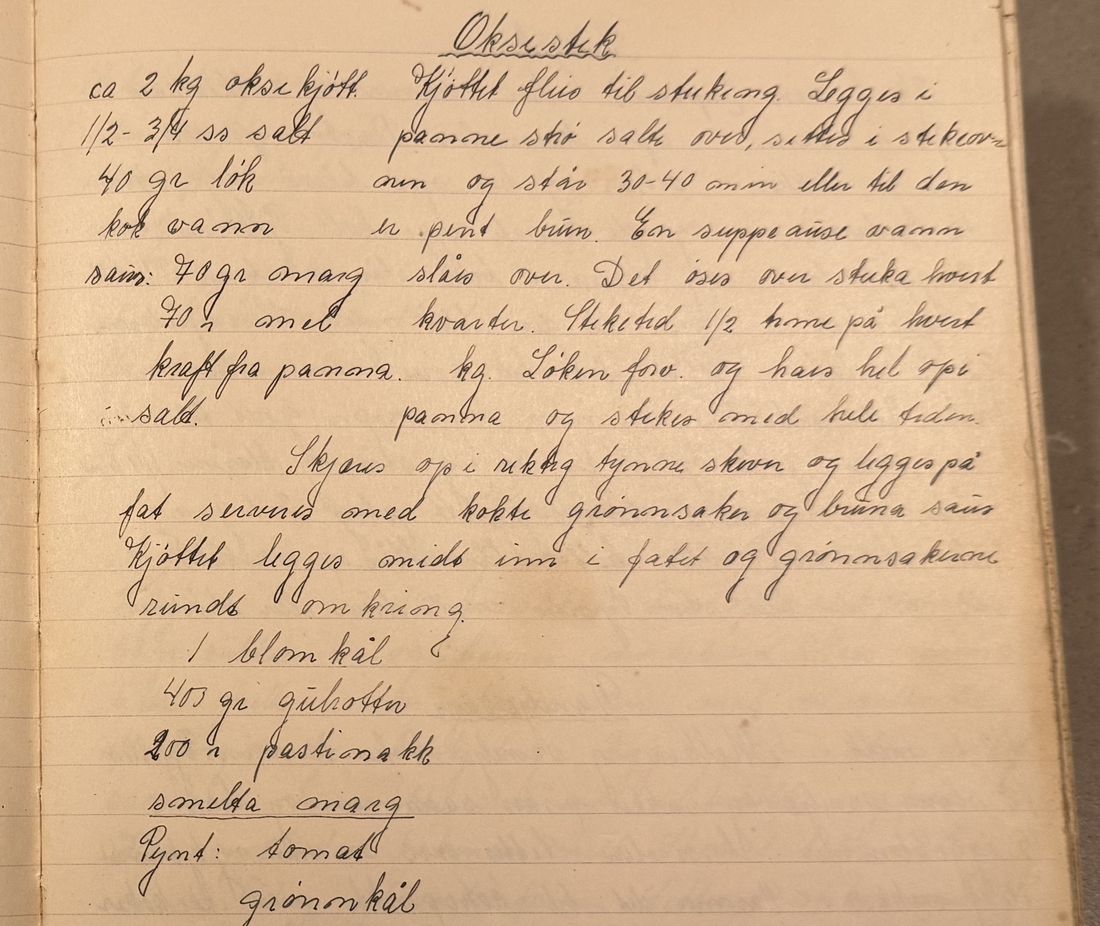 Oksestek
ca 2 kg oksekjøtt. Kjøttet flies til steking. Legges i
1/2 - 3/4 ss salt panne strø salt over, settes i stekeov-
40 gr løk nen og står 30-40 min eller til den
kok vann er pent brun. En suppeause vann
saus: 70 gr marg slåes over. Det øses over steka hvert
70 " mel kvarter. Steketid 1/2 time på hvert
kraft fra panna. kg. Løken forv. og haes hel opi
salt. panna og stekes med hele tiden.
Skjæres op i riktig tynne skiver og legges på
fat serveres med kokte grønnsaker og bruna saus
Kjøttet legges midt inn i fatet og grønnsakerne
rundt omkring.
1 blomkål
400 gr gulrøtter
200 " pastinakk
smelta marg
Pynt: tomat
grønnkål